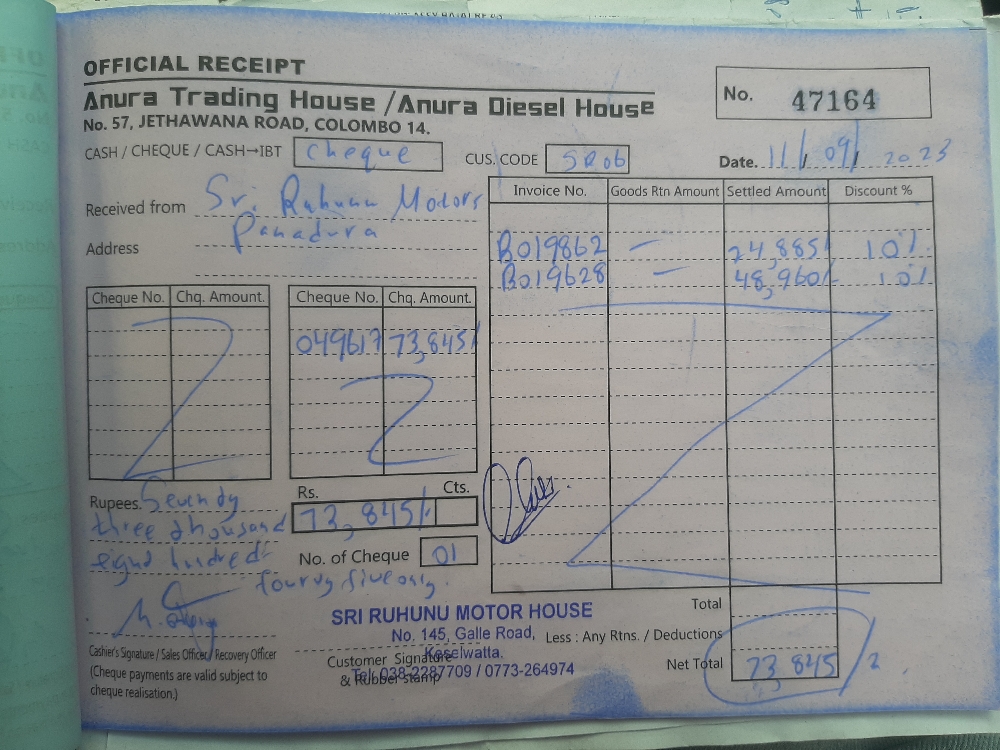 OFFICIAL RECEIPT
Anura Trading House / Anura Diesel House
No. 57, JETHAWANA ROAD, COLOMBO 14.
No. 47164
CASH / CHEQUE / CASH→IBT Cheque
CUS. CODE SR06
Date. 11/09/2023
Received from Sri Ruhunu Motors
Address Panadura
Invoice No. Goods Rtn Amount Settled Amount Discount %
B019862 — 24,885/ 10%
B019628 — 48,960/ 10%
Cheque No. Chq. Amount.
Cheque No. Chq. Amount.
049617 73,845/
Rupees. Sevendy
three thousand
eighd hundred
fourty five only.
Rs. Cts.
73,845/.
No. of Cheque 01
Total
Less : Any Rtns. / Deductions
Net Total 73,845
SRI RUHUNU MOTOR HOUSE
No. 145, Galle Road,
Keselwatta.
Tel: 038-2287709 / 0773-264974
Customer Signature
& Rubber stamp
Cashier's Signature / Sales Officer / Recovery Officer
(Cheque payments are valid subject to
cheque realisation.)